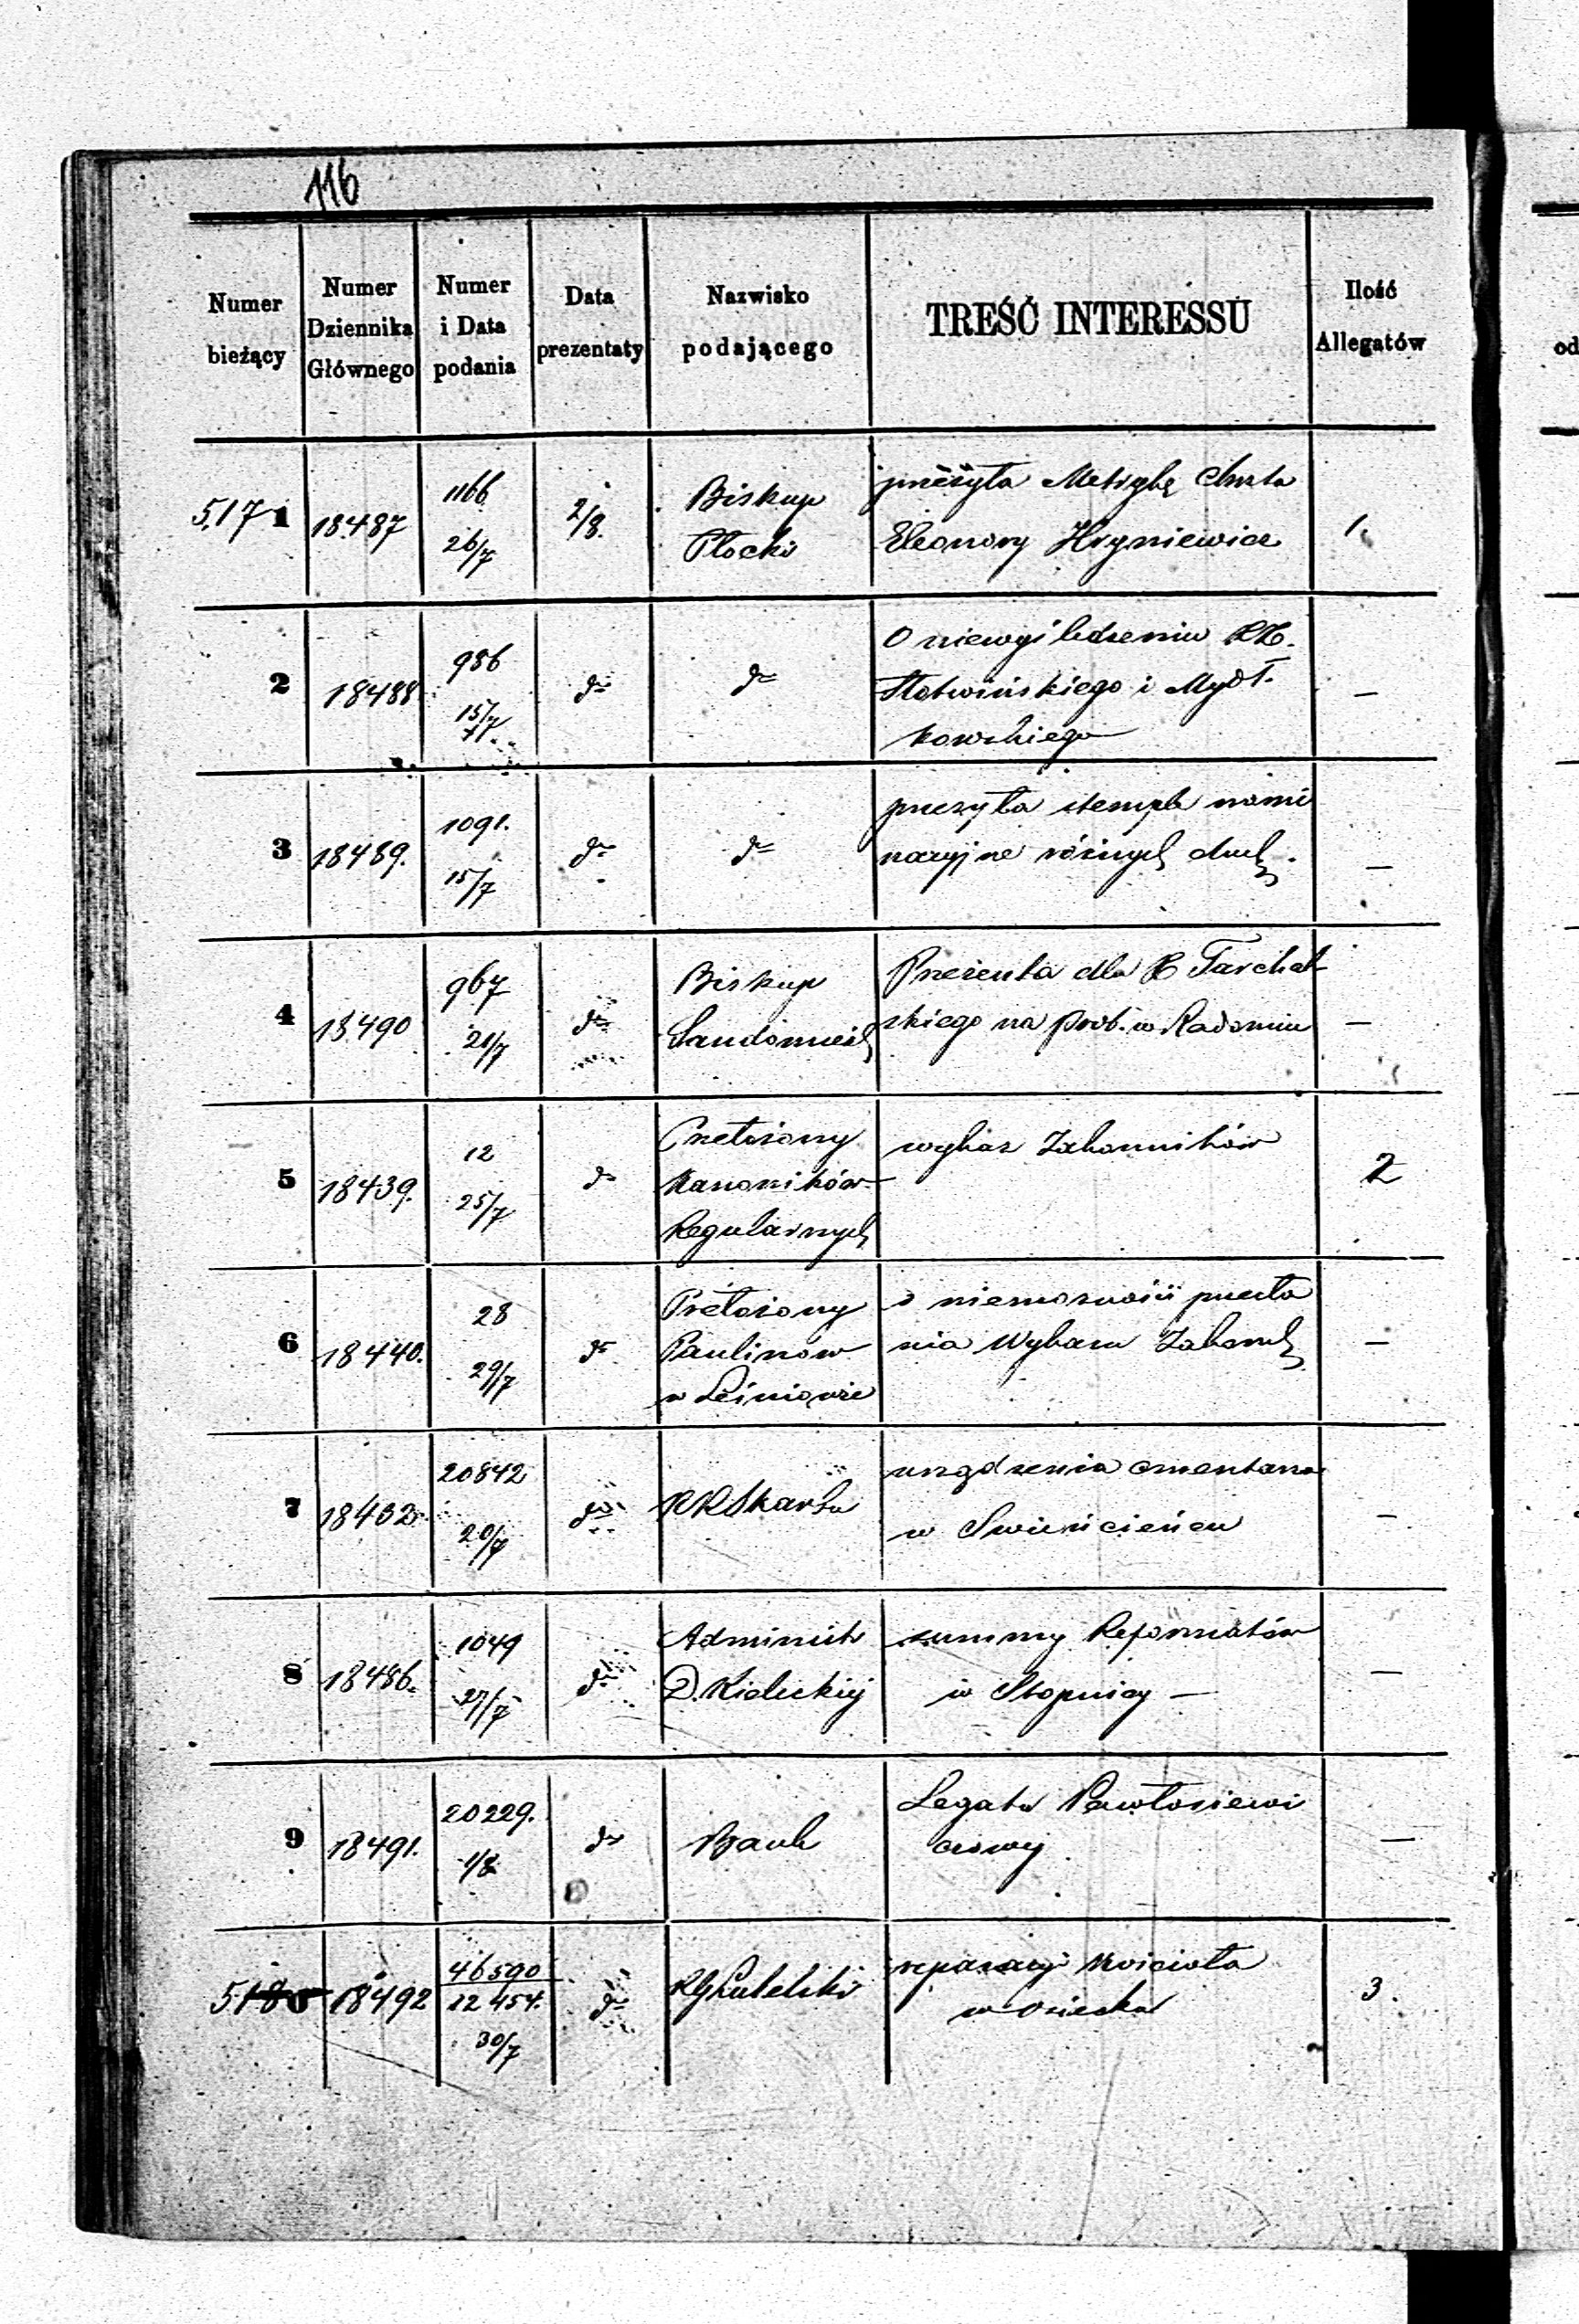 116
Numer bieżący
Numer Dziennika Głównego
Numer i Data podania
Data prezentaty
Nazwisko podającego
TREŚĆ INTERESSU
Ilość Allegatów
5,171 18487 1166 26/7 2/8. Biskup Płocki przesyła Metrykę Chrztu 1.
Eleonory Hryniewicz
2 18488 986 15/7 do do O niewyśledzeniu XX. —
Słotwińskiego i Mydł.
kowskiego
3 18489. 1091. 15/7 do do przesyła stemple nomi —
nacyjne różnych duch.
4 18490 967 21/7 do Biskup Sandomiersk Prezenta dla X Tarchal —
skiego na prob. w Radomiu
5 18439. 12 25/7 do Przełożony Kanoników Regularnych wykaz Zakonników 2
6 18440. 28 29/7 do Przełożony Paulinów w Leśniowie o niemożności przesła —
nia Wykazu Zakonn
7 18432 20842 20/7 do KRSkarbu urządzenia cmentarza —
w
8 18486. 1049 27/7 do Administr D. Kieleckiej summy Reformatów —
w Stopnicy —
9 18491. 20229. 1/8 do Bank Legatu —
5180 18492 46590 12454. 30/7 do RGLubelski reparacyi Kościoła 3.
w Osiecku
od